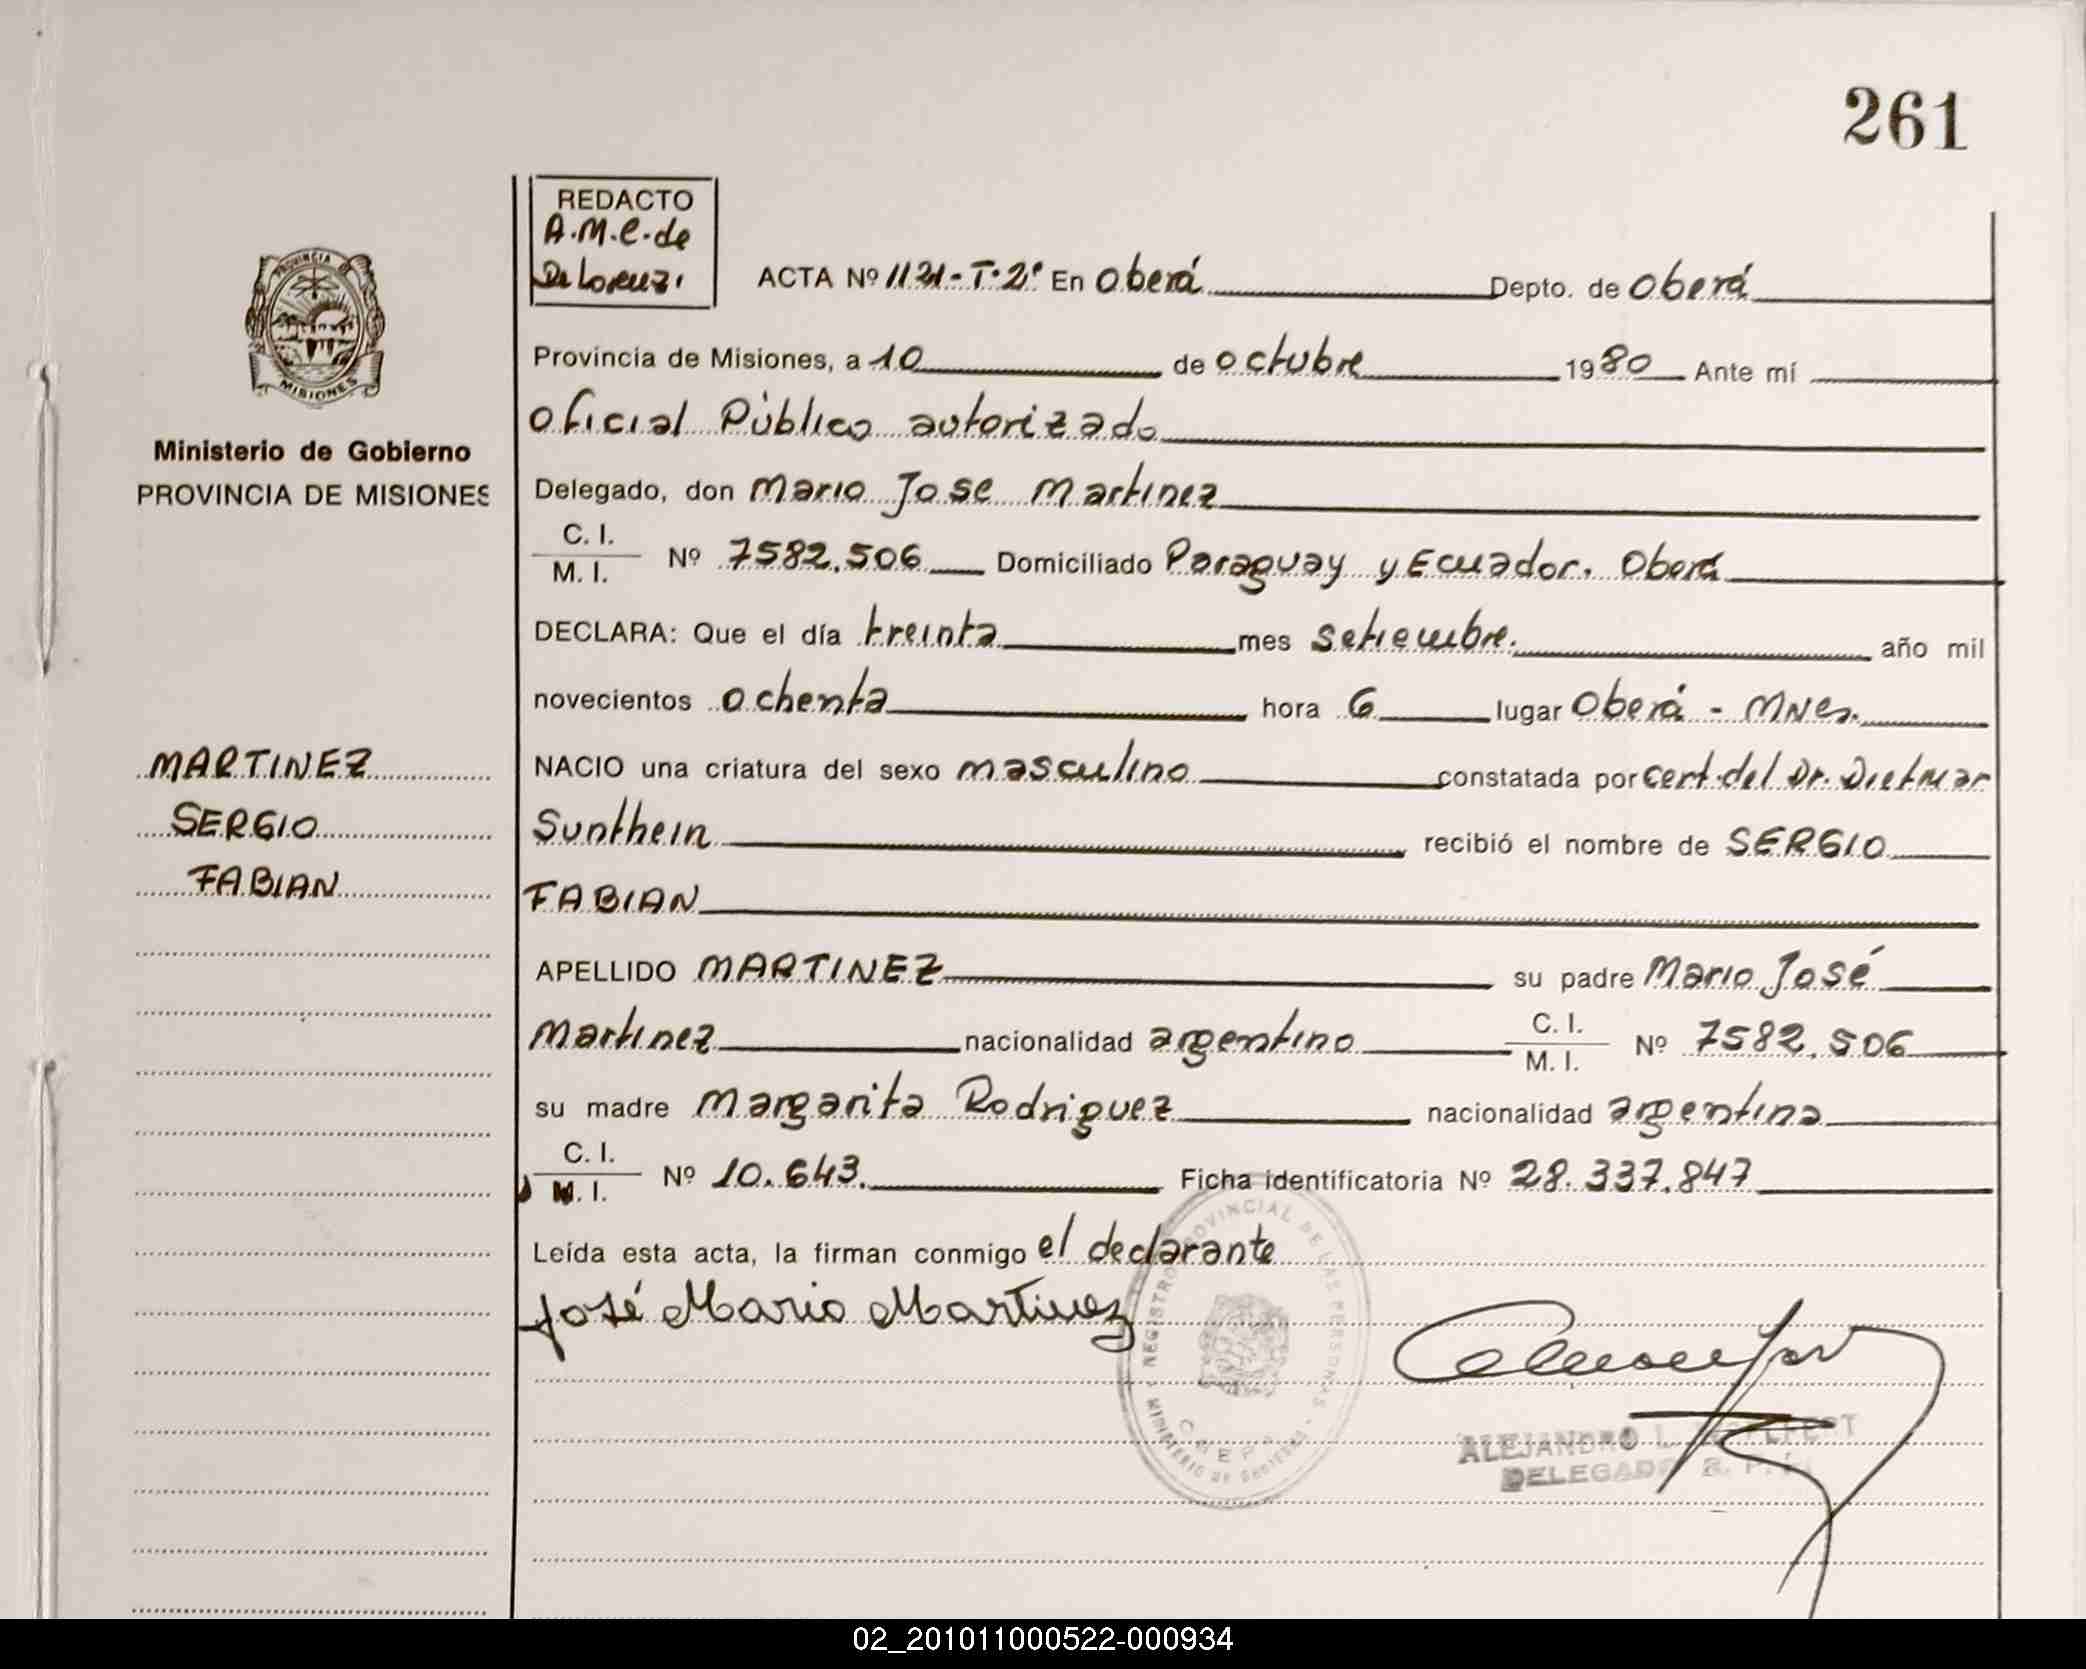 261
REDACTO
A.M.C. de
De Lorenzi
PROVINCIA DE
MISIONES
Ministerio de Gobierno
PROVINCIA DE MISIONES
ACTA Nº 1121-T.2º En Oberá Depto. de Oberá
Provincia de Misiones, a 10 de octubre 1980 Ante mí
Oficial Público autorizado
Delegado, don Mario Jose Martinez
C. I.
M. I. Nº 7582.506 Domiciliado Paraguay y Ecuador. Oberá
DECLARA: Que el día treinta mes setiembre. año mil
novecientos ochenta hora 6 lugar Oberá - Mnes.
NACIO una criatura del sexo masculino constatada por cert. del Dr. Dietmar
Sunthein recibió el nombre de SERGIO
FABIAN
MARTINEZ
SERGIO
FABIAN
APELLIDO MARTINEZ su padre Mario José
Martinez nacionalidad argentino C. I.
M. I. Nº 7582.506
su madre Margarita Rodriguez nacionalidad argentina
C. I.
M. I. Nº 10.643. Ficha identificatoria Nº 28.337.847
Leída esta acta, la firman conmigo el declarante
José Mario Martinez
REGISTRO PROVINCIAL DE LAS PERSONAS
MINISTERIO DE GOBIERNO
ALEJANDRO L.
DELEGADO R. P.
02_201011000522-000934